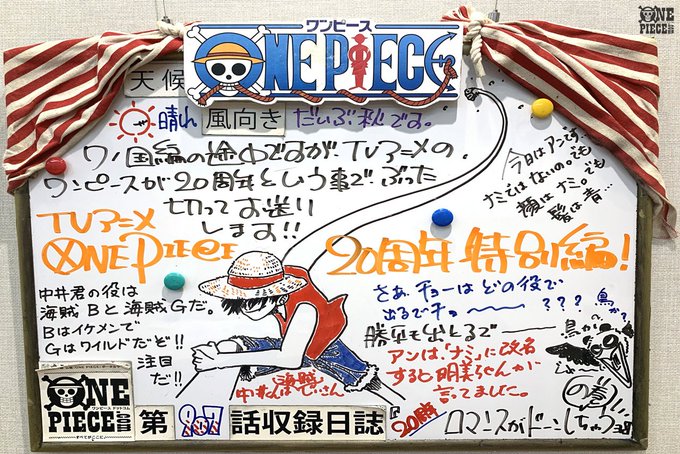 ワンピース
ONE PIECE
ONE PIECE
天候
晴れ
風向き
だいぶ秋です。
ワノ国編の途中ですが、TVアニメの
ワンピースが20周年という事で、ぶった
切ってお送り
します!!
今日はアン
ナミではないの。でも
顔はナミ。でも
髪は青…
TVアニメ
ONE PIECE
20周年 特別編!
中井君の役は
海賊Bと海賊Gだ。
Bはイケメンで
Gはワイルドだぞ!!
注目
だ!!
さあ、チョーはどの役で
出るでチョー ???
勝平も出とるでー
アンは、「ナミ」に改名
すると明美ちゃんが
言ってました。
鳥か?
鳥か
中井さんは海賊じいさん
ONE
PIECE
ワンピース ドットコム
すべてがここに
第 907 話収録日誌
「20周年
ロマンスがドーンしちゃう
の巻」